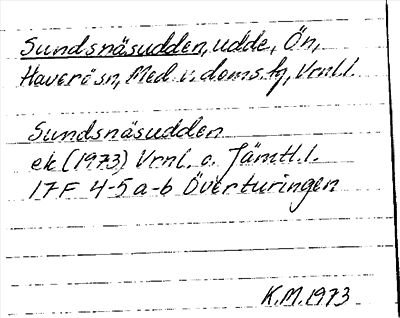 Sundsnäsudden, udde, Ön,
Haverö sn, Med. v. doms. tg, Vrnl. l.
Sundsnäsudden
ek (1973) Vrnl. o. Jämtl. l.
17F 4-5 a-b Överturingen
K.M. 1973